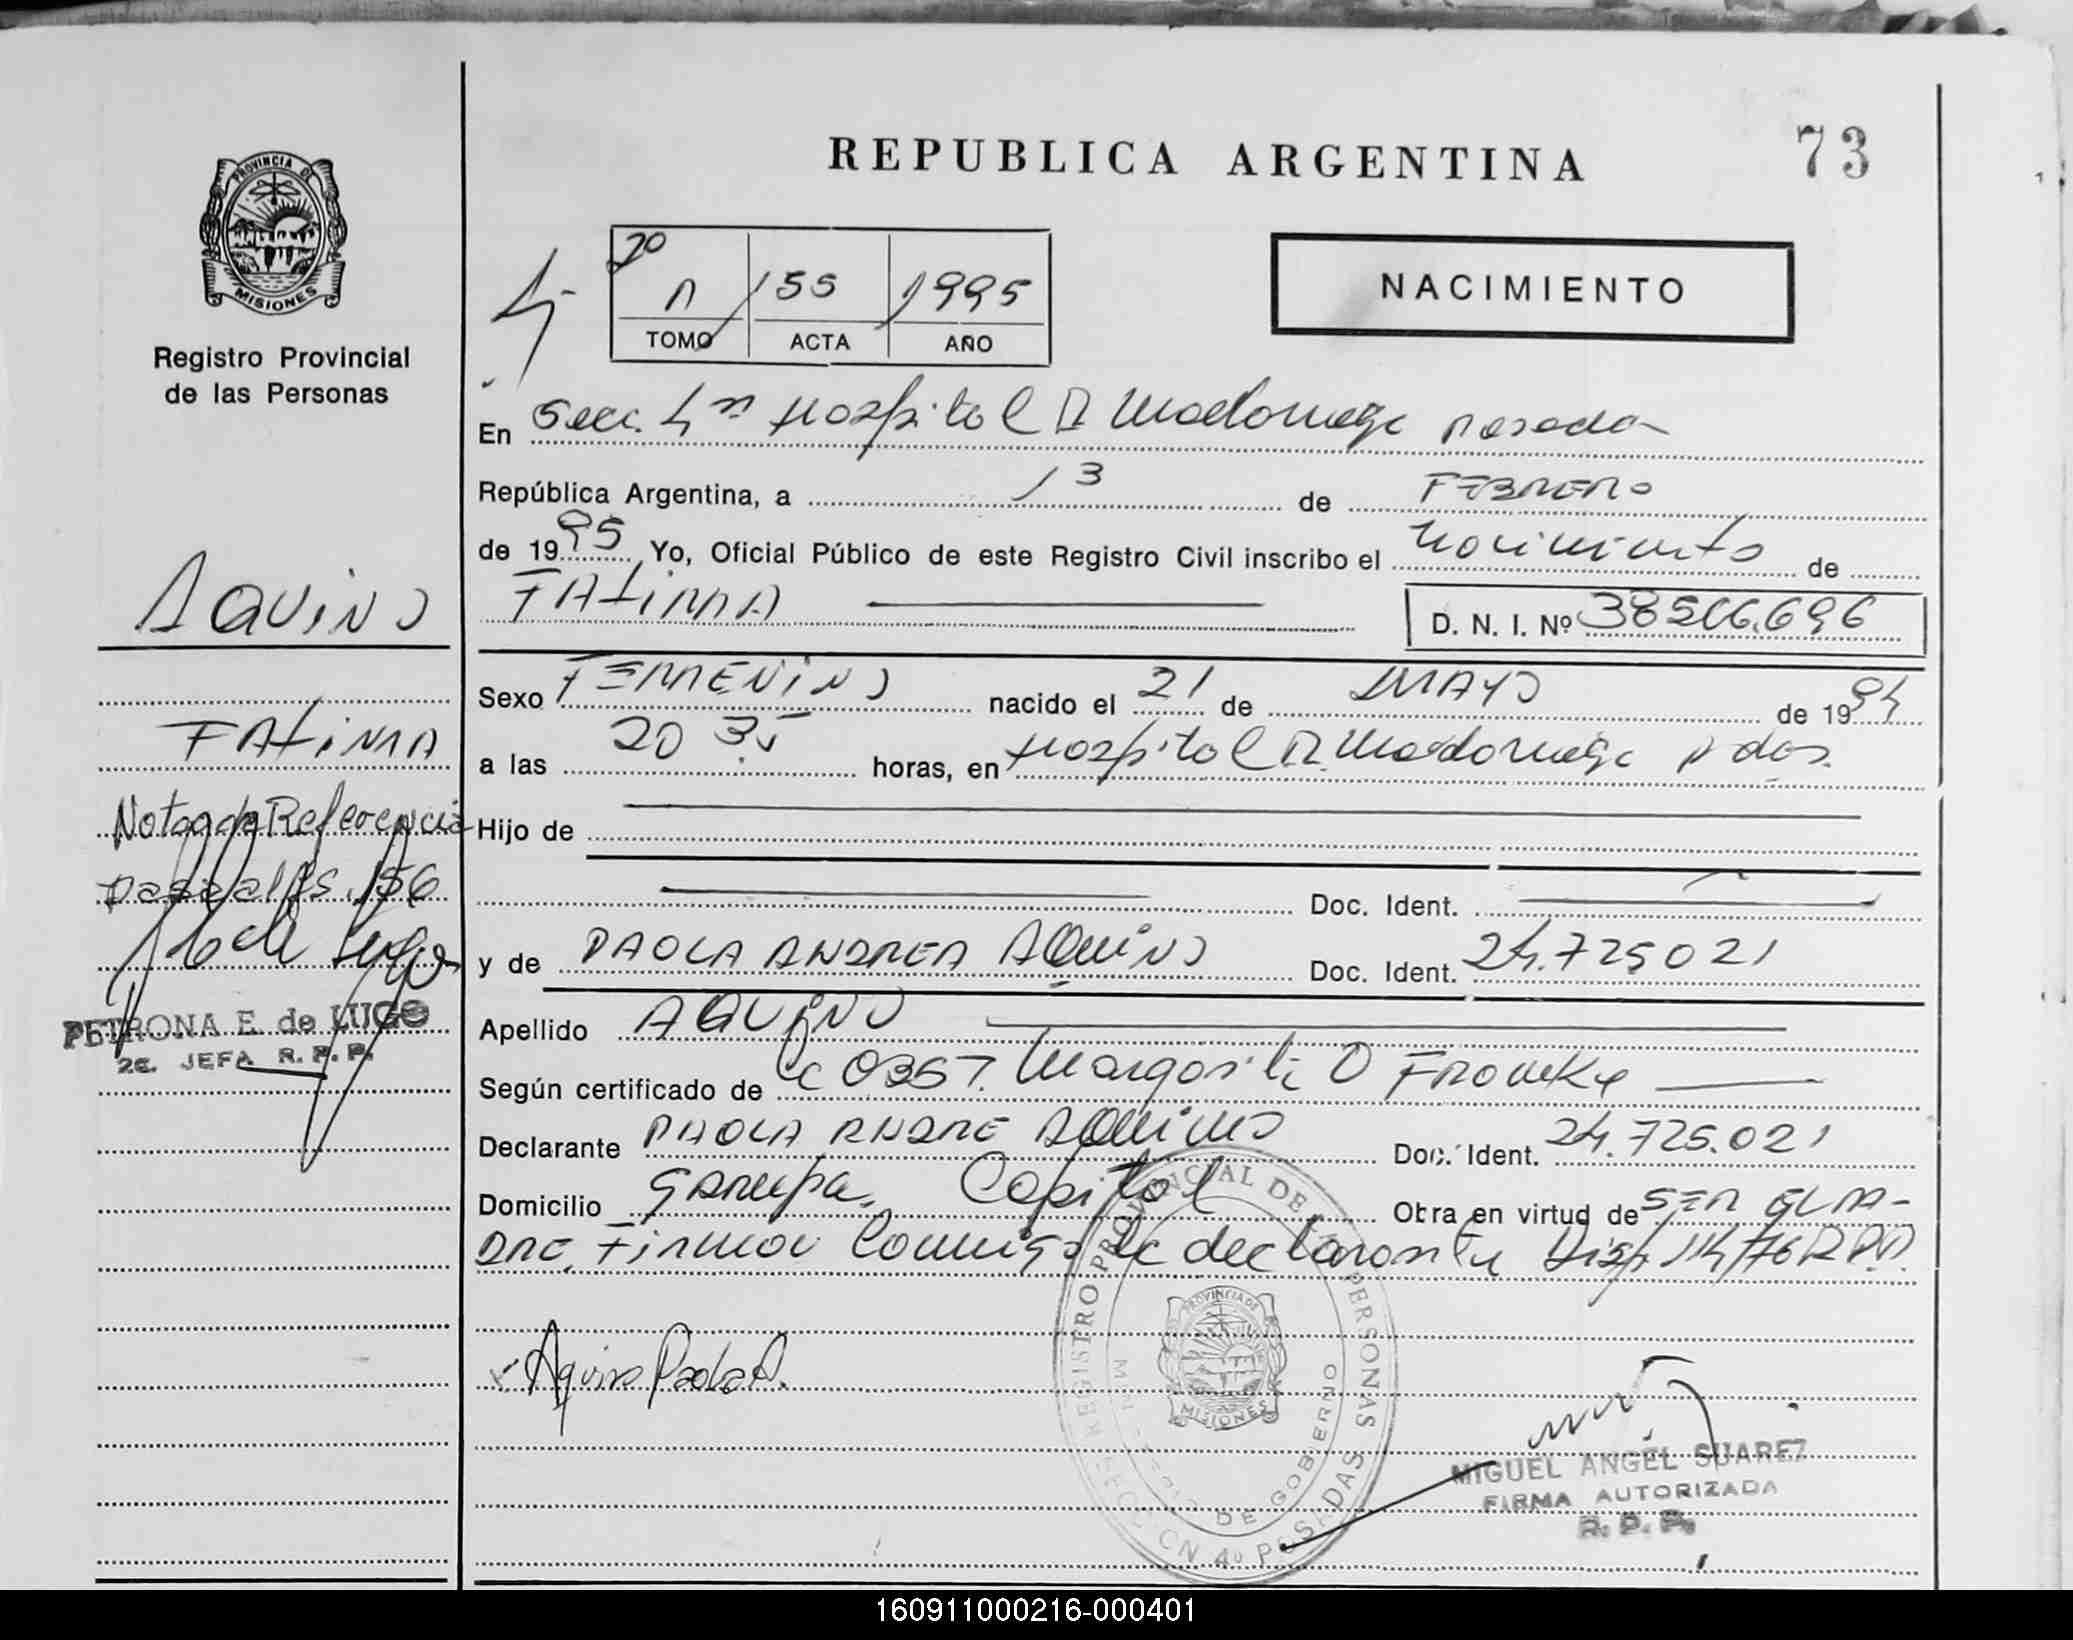 REPUBLICA ARGENTINA
73
PROVINCIA DE
MISIONES
Registro Provincial
de las Personas
20
155
1995
TOMO
ACTA
AÑO
NACIMIENTO
En Secc. 4ta Hospital Dr Madariaga Posadas
República Argentina, a 13 de FEBRERO
de 1995 Yo, Oficial Público de este Registro Civil inscribo el nacimiento de
FAtiMA
D. N. I. Nº
AQUiNO
FAtiMA
Sexo FEMENiNO nacido el 21 de MAYO de 1994
a las 20 35 horas, en Hospital Dr. Madariaga Pdas.
Nota de Referencia
Pasa al fs. 156
PETRONA E. de LUGO
2e. JEFA R. P. P.
Hijo de
Doc. Ident.
y de PAOLA ANDREA AQUiNO Doc. Ident. 24.725021
Apellido AQUiNO
Según certificado de Margarita
Declarante PAOLA ANDRE AQUINO Doc. Ident. 24.725.021
Domicilio GARUPA, Capital Obra en virtud de SER LA MA-
DRE, Firma Conmigo la declarante Disp 114/76 R.P.P.
Aquino Paola A.
REGISTRO PROVINCIAL DE LAS PERSONAS
MINISTERIO DE GOBIERNO
SECCION 4º POSADAS
PROVINCIA DE
MISIONES
MIGUEL ANGEL SUAREZ
FIRMA AUTORIZADA
R. P. P.
160911000216-000401